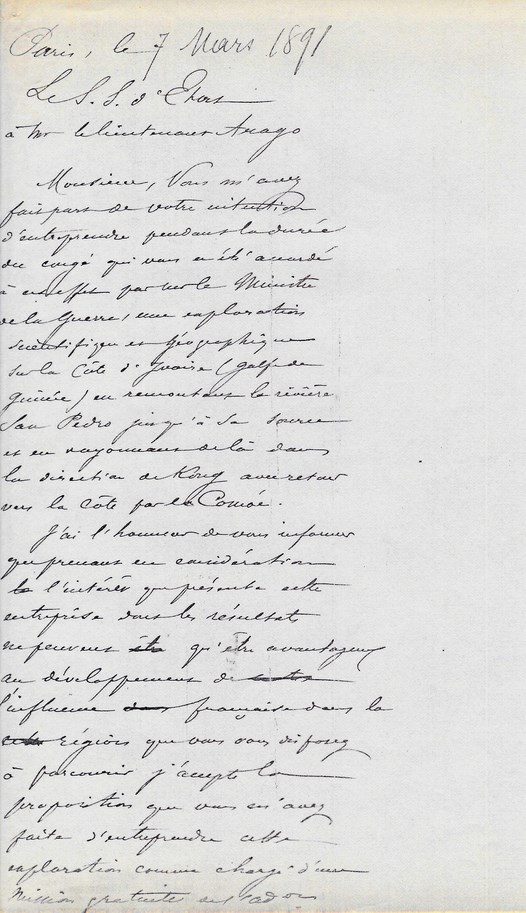 Paris, le 7 Mars 1891
Le S. S. d'Etat
à Mr le lieutenant Arago
Monsieur, Vous m'avez
fait part de votre intention
d'entreprendre pendant la durée
du congé qui vous a été accordé
à cet effet par Mr le Ministre
de la Guerre, une exploration
scientifique et géographique
sur la Côte d'Ivoire (golfe de
Guinée) en remontant la rivière
San Pedro jusqu'à sa source
et en rayonnant de là dans
la direction de Kong avec retour
vers la côte par le Comoé.
J'ai l'honneur de vous informer
que prenant en considération
l'intérêt que présente cette
entreprise dont les résultats
ne peuvent qu'être avantageux
au développement de
l'influence française dans la
région que vous vous disposez
à parcourir j'accepte la
proposition que vous m'avez
faite d'entreprendre cette
exploration comme chargé d'une
mission gratuite